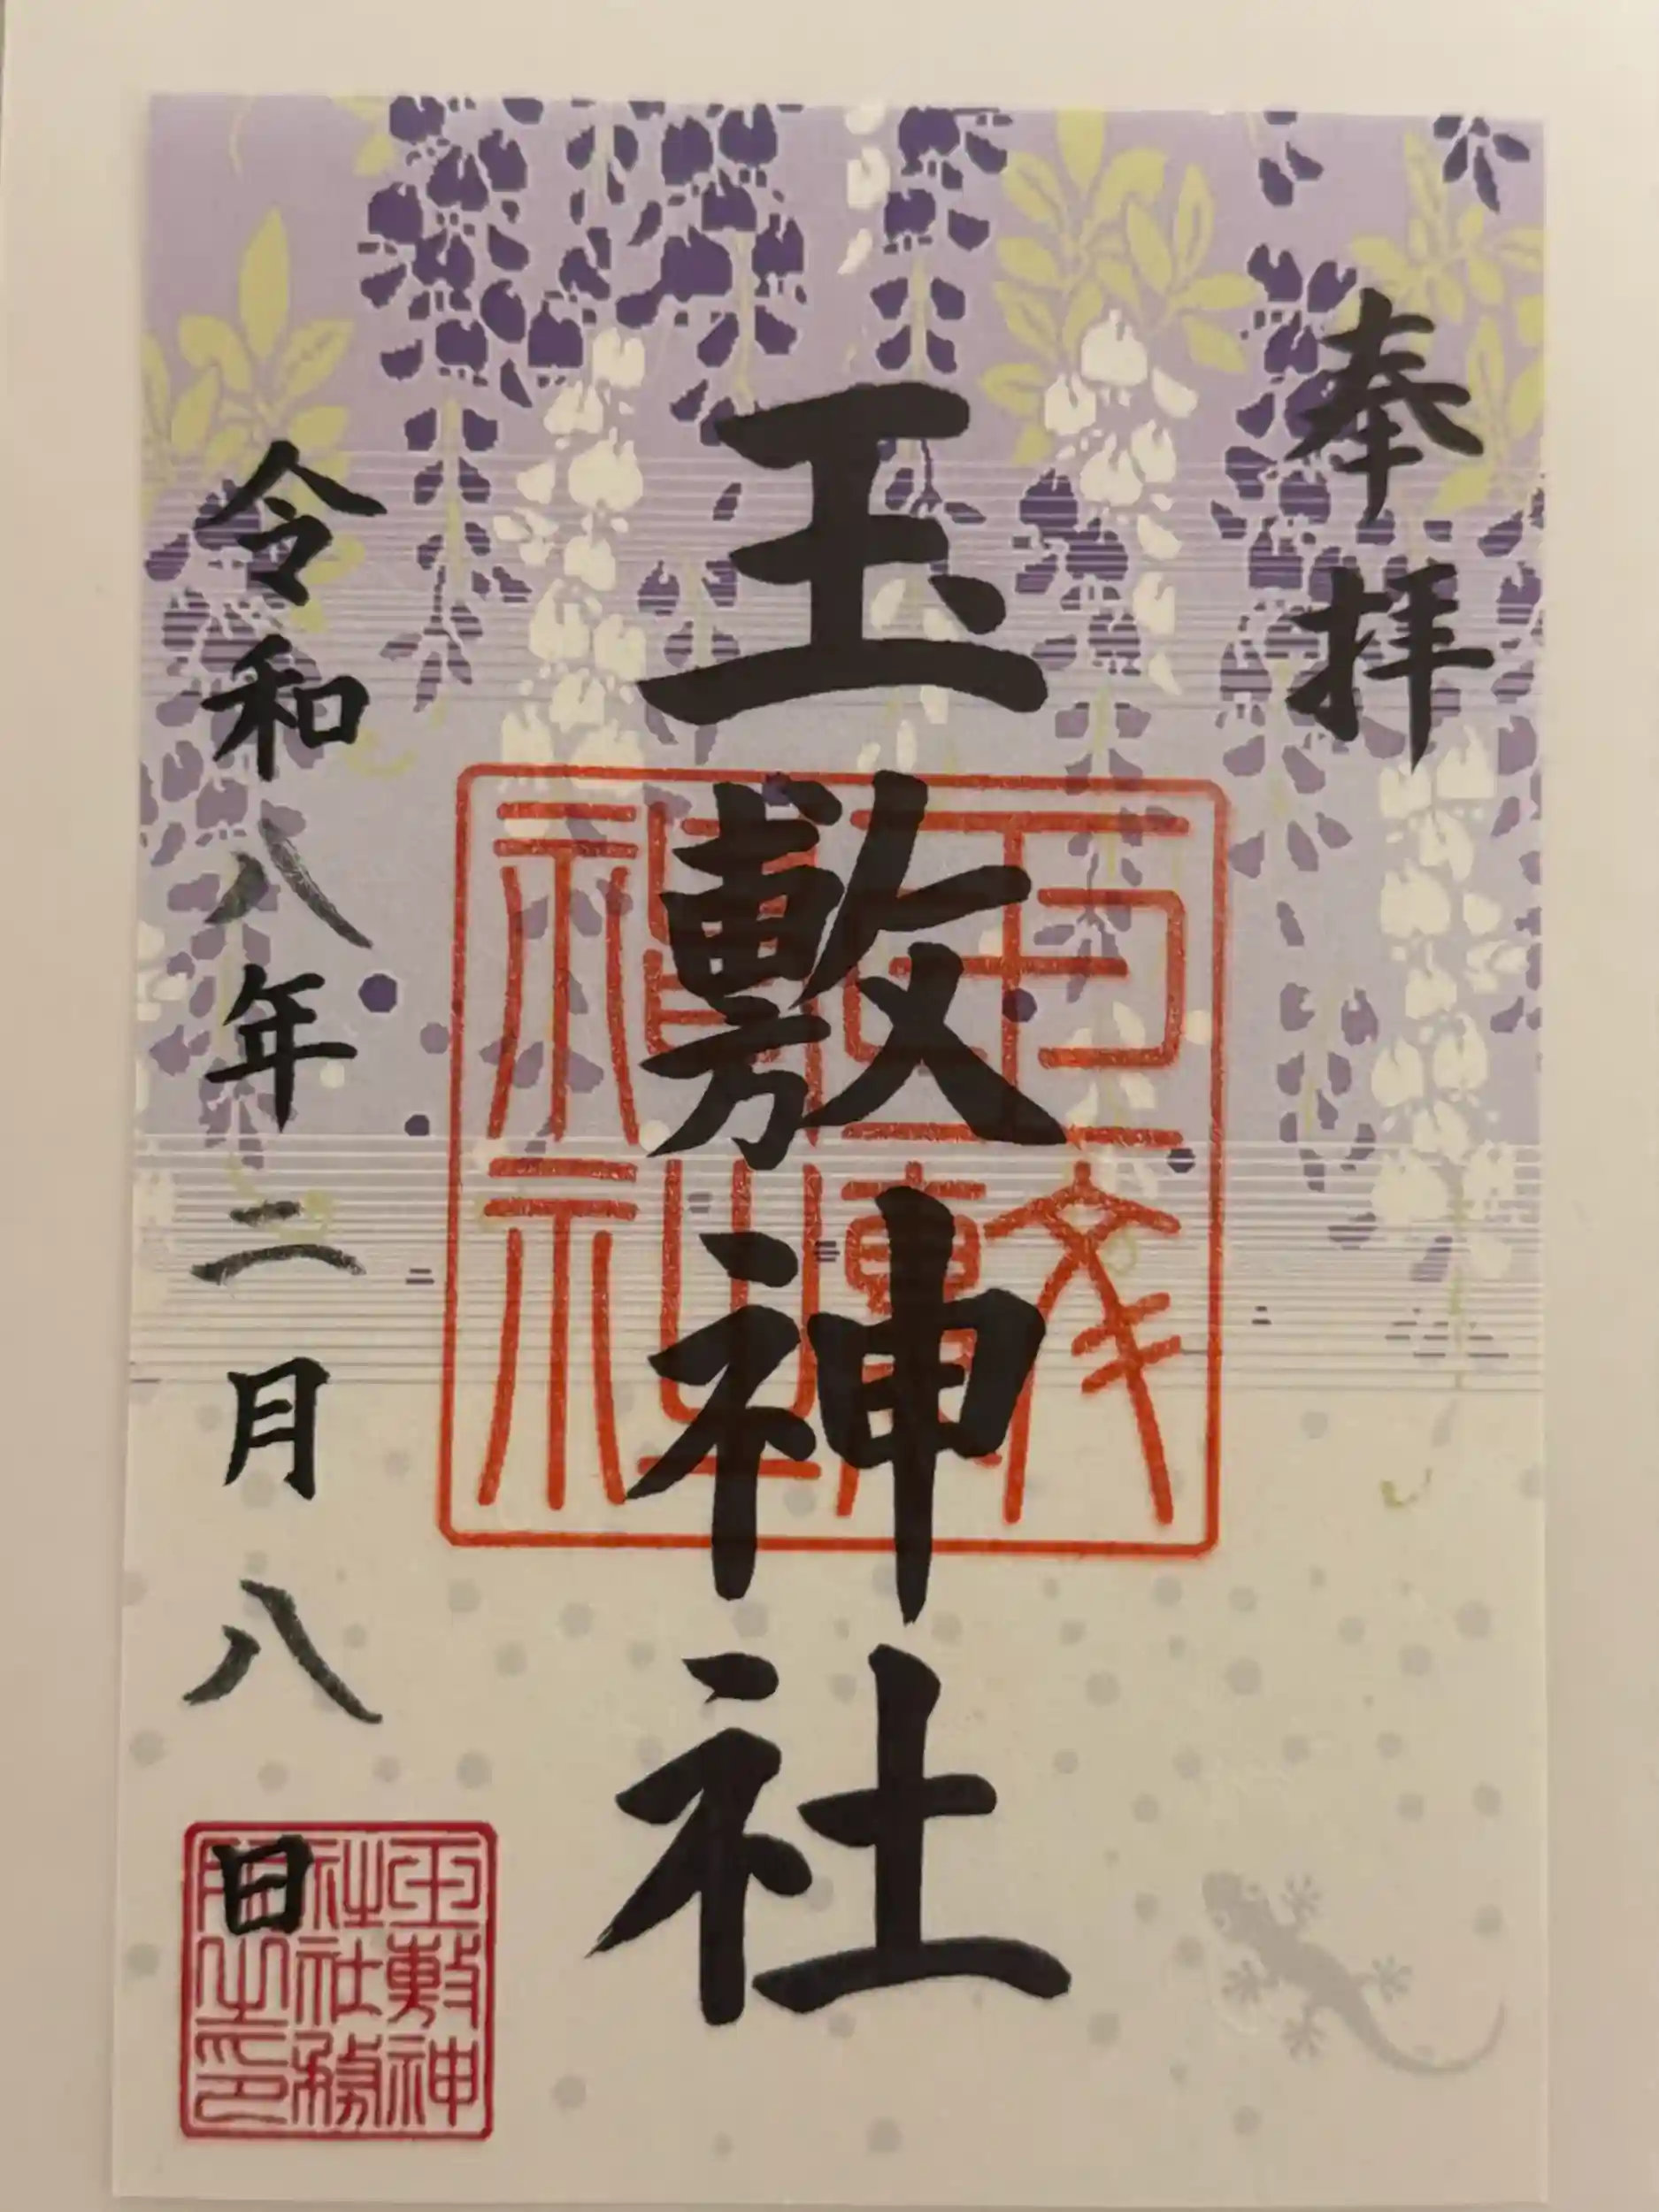 奉拝
玉敷神社
玉敷神社
令和八年二月八日
玉敷神
社社務
所之印